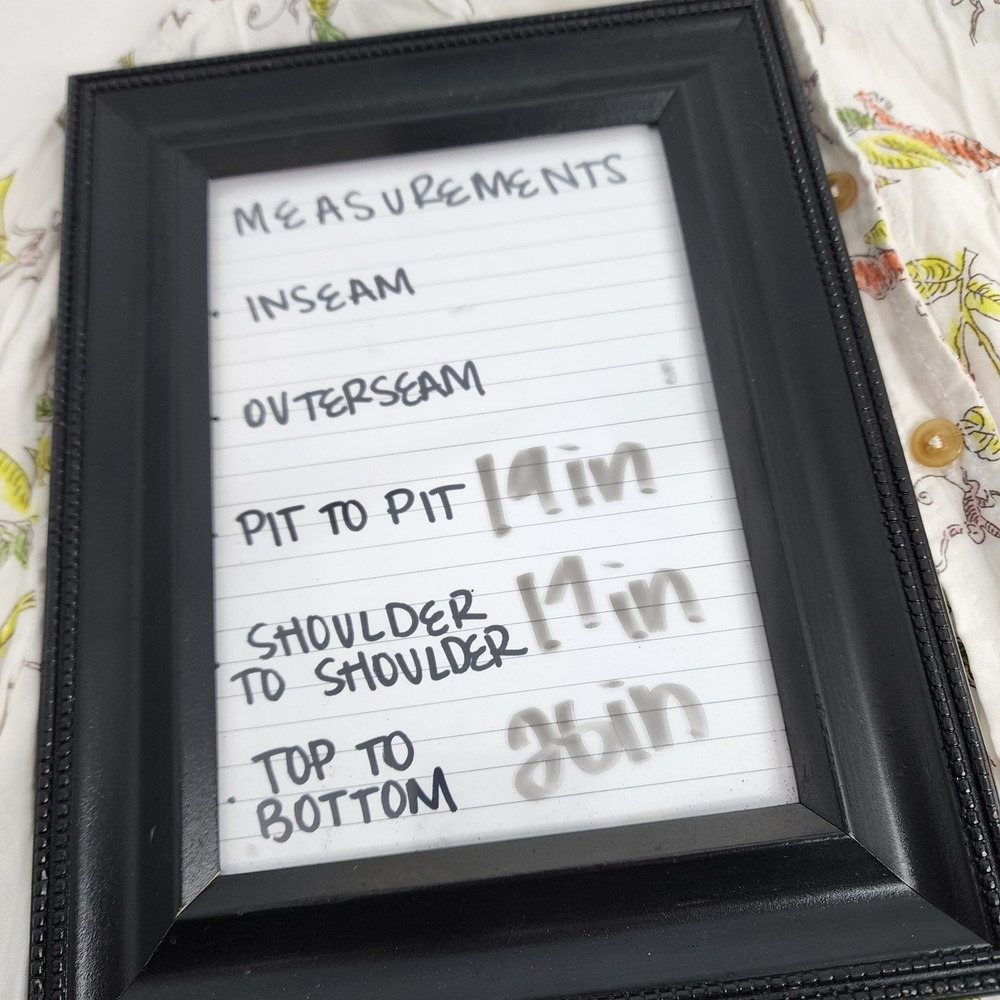 MEASUREMENTS
INSEAM
OUTERSEAM
PIT TO PIT 19 in
SHOULDER
TO SHOULDER 17 in
TOP TO
BOTTOM 26in